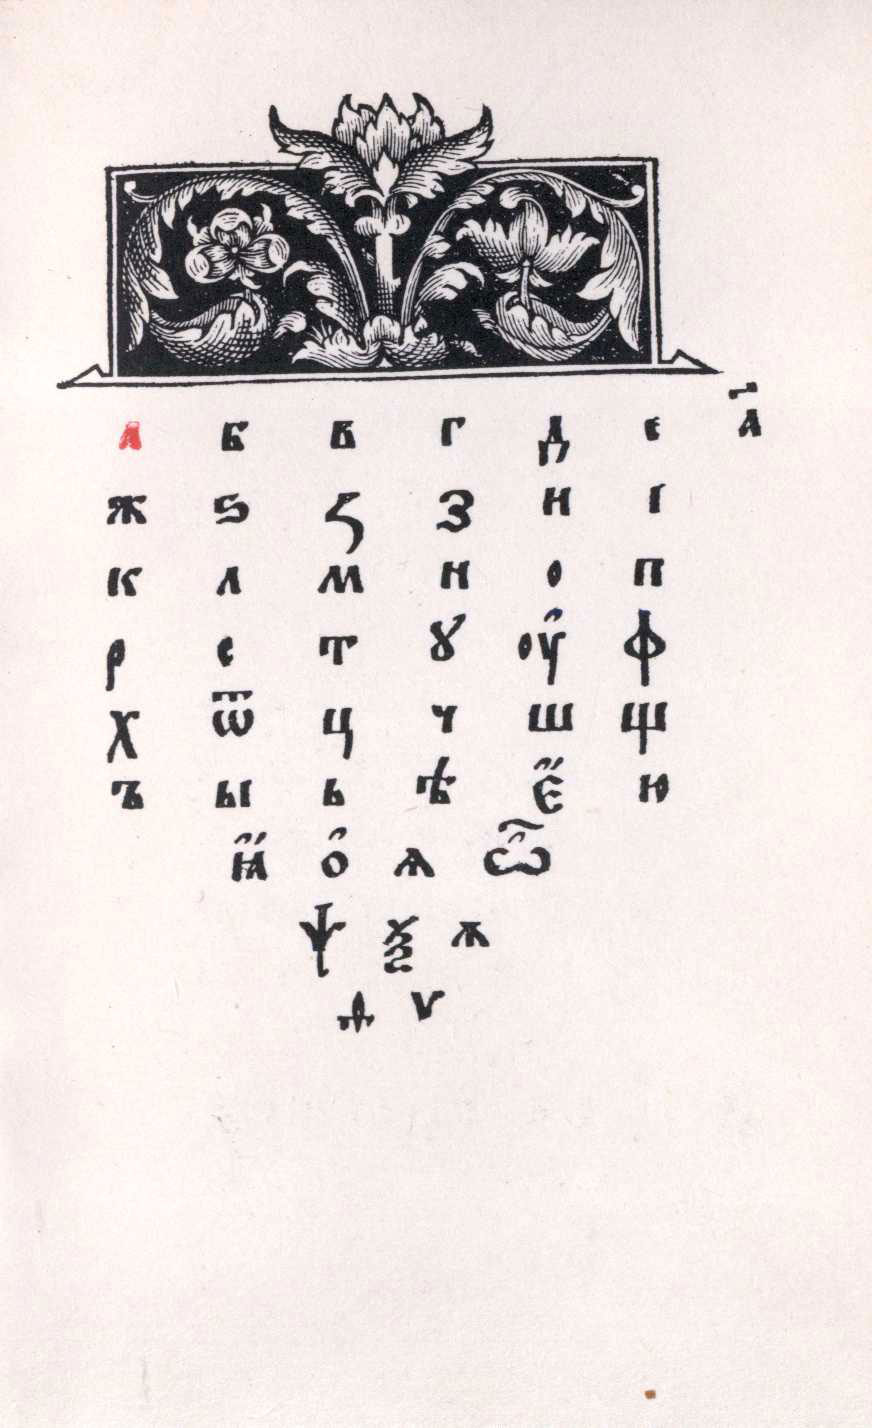 а҃
а б в г д е
ж ѕ ꙁ з и і
к л м н о п
р с т ꙋ оу҆ ф
х ѿ ц ч ш щ
ъ ы ь ѣ є҆҆ ю
ꙗ҆҆ о҆ ѧ ѽ
ѱ ѯ ѫ
ѳ ѵ